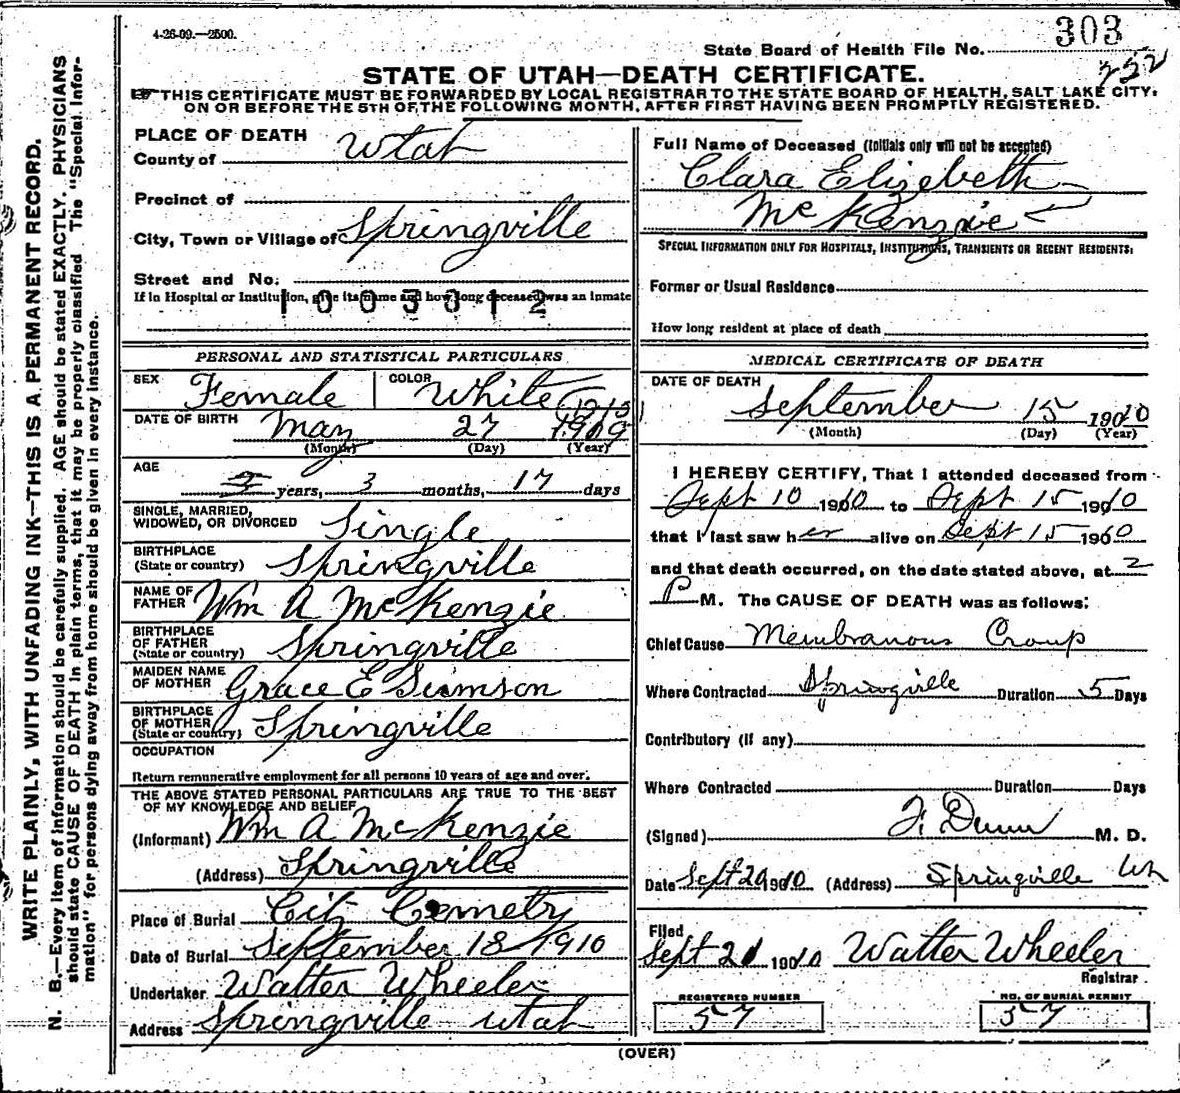 4-26-09.—2500.
State Board of Health File No. 303
252
STATE OF UTAH—DEATH CERTIFICATE.
THIS CERTIFICATE MUST BE FORWARDED BY LOCAL REGISTRAR TO THE STATE BOARD OF HEALTH, SALT LAKE CITY,
ON OR BEFORE THE 5TH OF THE FOLLOWING MONTH, AFTER FIRST HAVING BEEN PROMPTLY REGISTERED.
WRITE PLAINLY, WITH UNFADING INK—THIS IS A PERMANENT RECORD.
N. B.—Every item of information should be carefully supplied. AGE should be stated EXACTLY. PHYSICIANS
should state CAUSE OF DEATH in plain terms, that it may be properly classified. The "Special Infor-
mation" for persons dying away from home should be given in every instance.
PLACE OF DEATH
County of Utah
Precinct of
City, Town or Village of Springville
Street and No.
If in Hospital or Institution, give its name and how long deceased was an inmate
1003012
PERSONAL AND STATISTICAL PARTICULARS
SEX Female COLOR White
DATE OF BIRTH May 27 1909
(Month) (Day) (Year)
AGE
years, 3 months, 17 days
SINGLE, MARRIED,
WIDOWED, OR DIVORCED Single
BIRTHPLACE
(State or country) Springville
NAME OF
FATHER Wm A McKenzie
BIRTHPLACE
OF FATHER
(State or country) Springville
MAIDEN NAME
OF MOTHER Grace E
BIRTHPLACE
OF MOTHER
(State or country) Springville
OCCUPATION
Return remunerative employment for all persons 10 years of age and over.
THE ABOVE STATED PERSONAL PARTICULARS ARE TRUE TO THE BEST
OF MY KNOWLEDGE AND BELIEF
(Informant) Wm A McKenzie
(Address) Springville
Place of Burial City Cemetry
Date of Burial September 18 1910
Undertaker Walter Wheeler
Address Springville Utah
Full Name of Deceased (Initials only will not be accepted)
Clara Elizebeth
McKenzie
SPECIAL INFORMATION ONLY FOR HOSPITALS, INSTITUTIONS, TRANSIENTS OR RECENT RESIDENTS:
Former or Usual Residence
How long resident at place of death
MEDICAL CERTIFICATE OF DEATH
DATE OF DEATH
September 15 1910
(Month) (Day) (Year)
I HEREBY CERTIFY, That I attended deceased from
Sept 10 1910 to Sept 15 1910
that I last saw her alive on Sept 15 1910
and that death occurred, on the date stated above, at 2
P M. The CAUSE OF DEATH was as follows:
Chief Cause Membranous Croup
Where Contracted Springville Duration 5 Days
Contributory (if any)
Where Contracted Duration Days
(Signed) F. Dunn M. D.
Date Sept 20 1910 (Address) Springville Ut
Filed
Sept 21 1910 Walter Wheeler
Registrar
REGISTERED NUMBER
57
NO. OF BURIAL PERMIT
57
(OVER)